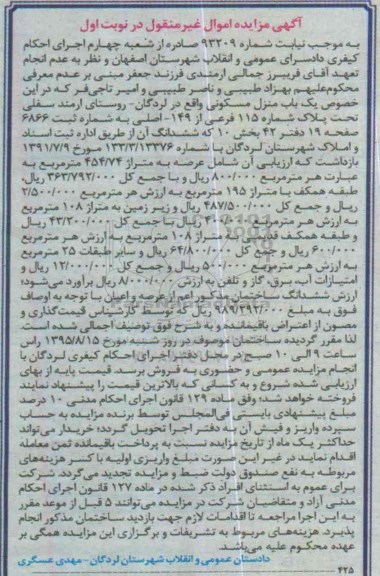 آگهی مزایده اموال غیرمنقول در نوبت اول
به موجب نیابت شماره ۹۳۲۰۹ صادره از شعبه چهارم اجرای احکام
کیفری دادسرای عمومی و انقلاب شهرستان اصفهان و نظر به عدم انجام
تعهد آقای فریبرز جمالی ارمندی فرزند جعفر مبنی بر عدم معرفی
محکوم‌علیهم بهزاد طبیبی و ناصر طبیبی و امیر تاجی‌فر که در این
خصوص یک باب منزل مسکونی واقع در لردگان- روستای ارمند سفلی
تحت پلاک شماره ۱۱۵ فرعی از ۱۴۹- اصلی به شماره ثبت ۶۸۶۶
صفحه ۱۹ دفتر ۴۲ بخش ۱۰ که ششدانگ آن از طریق اداره ثبت اسناد
و املاک شهرستان لردگان با شماره ۱۳۳/۳/۱۳۳۷۶ مورخ ۱۳۹۱/۷/۹
بازداشت که ارزیابی آن شامل عرصه به متراژ ۴۵۴/۷۴ مترمربع به
عبارت هر مترمربع ۸۰۰/۰۰۰ ریال و با جمع کل ۳۶۳/۷۹۲/۰۰۰ ریال،
طبقه همکف با متراژ ۱۹۵ مترمربع به ارزش هر مترمربع ۲/۵۰۰/۰۰۰
ریال و جمع کل ۴۸۷/۵۰۰/۰۰۰ ریال و زیر زمین به متراژ ۱۰۸ مترمربع
به ارزش هر مترمربع ۴۰۰/۰۰۰ ریال با جمع کل ۴۳/۲۰۰/۰۰۰ ریال
و طبقه همکف قدیمی به متراژ ۱۰۸ مترمربع به ارزش هر مترمربع
۶۰۰/۰۰۰ ریال و جمع کل ۶۴/۸۰۰/۰۰۰ ریال و سایر طبقات ۲۵ مترمربع
به ارزش هر مترمربع ۵۰۰/۰۰۰ ریال و جمع کل ۱۲/۰۰۰/۰۰۰ ریال و
امتیازات آب، برق، گاز و تلفن به ارزش ۸/۰۰۰/۰۰۰ ریال برآورد می‌شود؛
ارزش ششدانگ ساختمان مذکور اعم از عرصه و اعیان با توجه به اوصاف
فوق به مبلغ ۹۸۹/۲۹۲/۰۰۰ ریال که توسط کارشناس قیمت‌گذاری و
مصون از اعتراض باقیمانده و به شرح فوق توصیف اجمالی شده است.
لذا مقرر گردیده ساختمان موصوف در روز شنبه مورخ ۱۳۹۵/۸/۱۵ راس
ساعت ۹ الی ۱۰ صبح در محل دفتر اجرای احکام کیفری لردگان با
انجام مزایده عمومی و حضوری به فروش برسد. قیمت پایه از بهای
ارزیابی شده شروع و به کسانی که بالاترین قیمت را پیشنهاد نمایند
فروخته خواهد شد؛ وفق ماده ۱۲۹ قانون اجرای احکام مدنی ۱۰ درصد
مبلغ پیشنهادی بایستی فی‌المجلس توسط برنده مزایده به حساب
سپرده واریز و فیش آن به دفتر اجرا تحویل گردد؛ خریدار می‌تواند
حداکثر یک ماه از تاریخ مزایده نسبت به پرداخت باقیمانده ثمن معامله
اقدام نماید در غیر این صورت مبلغ واریزی اولیه با کسر هزینه‌های
مربوطه به نفع صندوق دولت ضبط و مزایده تجدید می‌گردد. شرکت
برای عموم به استثنای افراد ذکر شده در ماده ۱۲۷ قانون اجرای احکام
مدنی آزاد و متقاضیان شرکت در مزایده می‌توانند ۵ قبل از موعد مقرر
به این اجرا مراجعه تا اقدامات لازم جهت بازدید ساختمان مذکور انجام
پذیرد. هزینه‌های مربوط به تشریفات و برگزاری این مزایده همگی بر
عهده محکوم علیه می‌باشد.
دادستان عمومی و انقلاب شهرستان لردگان- مهدی عسگری
۴۲۵